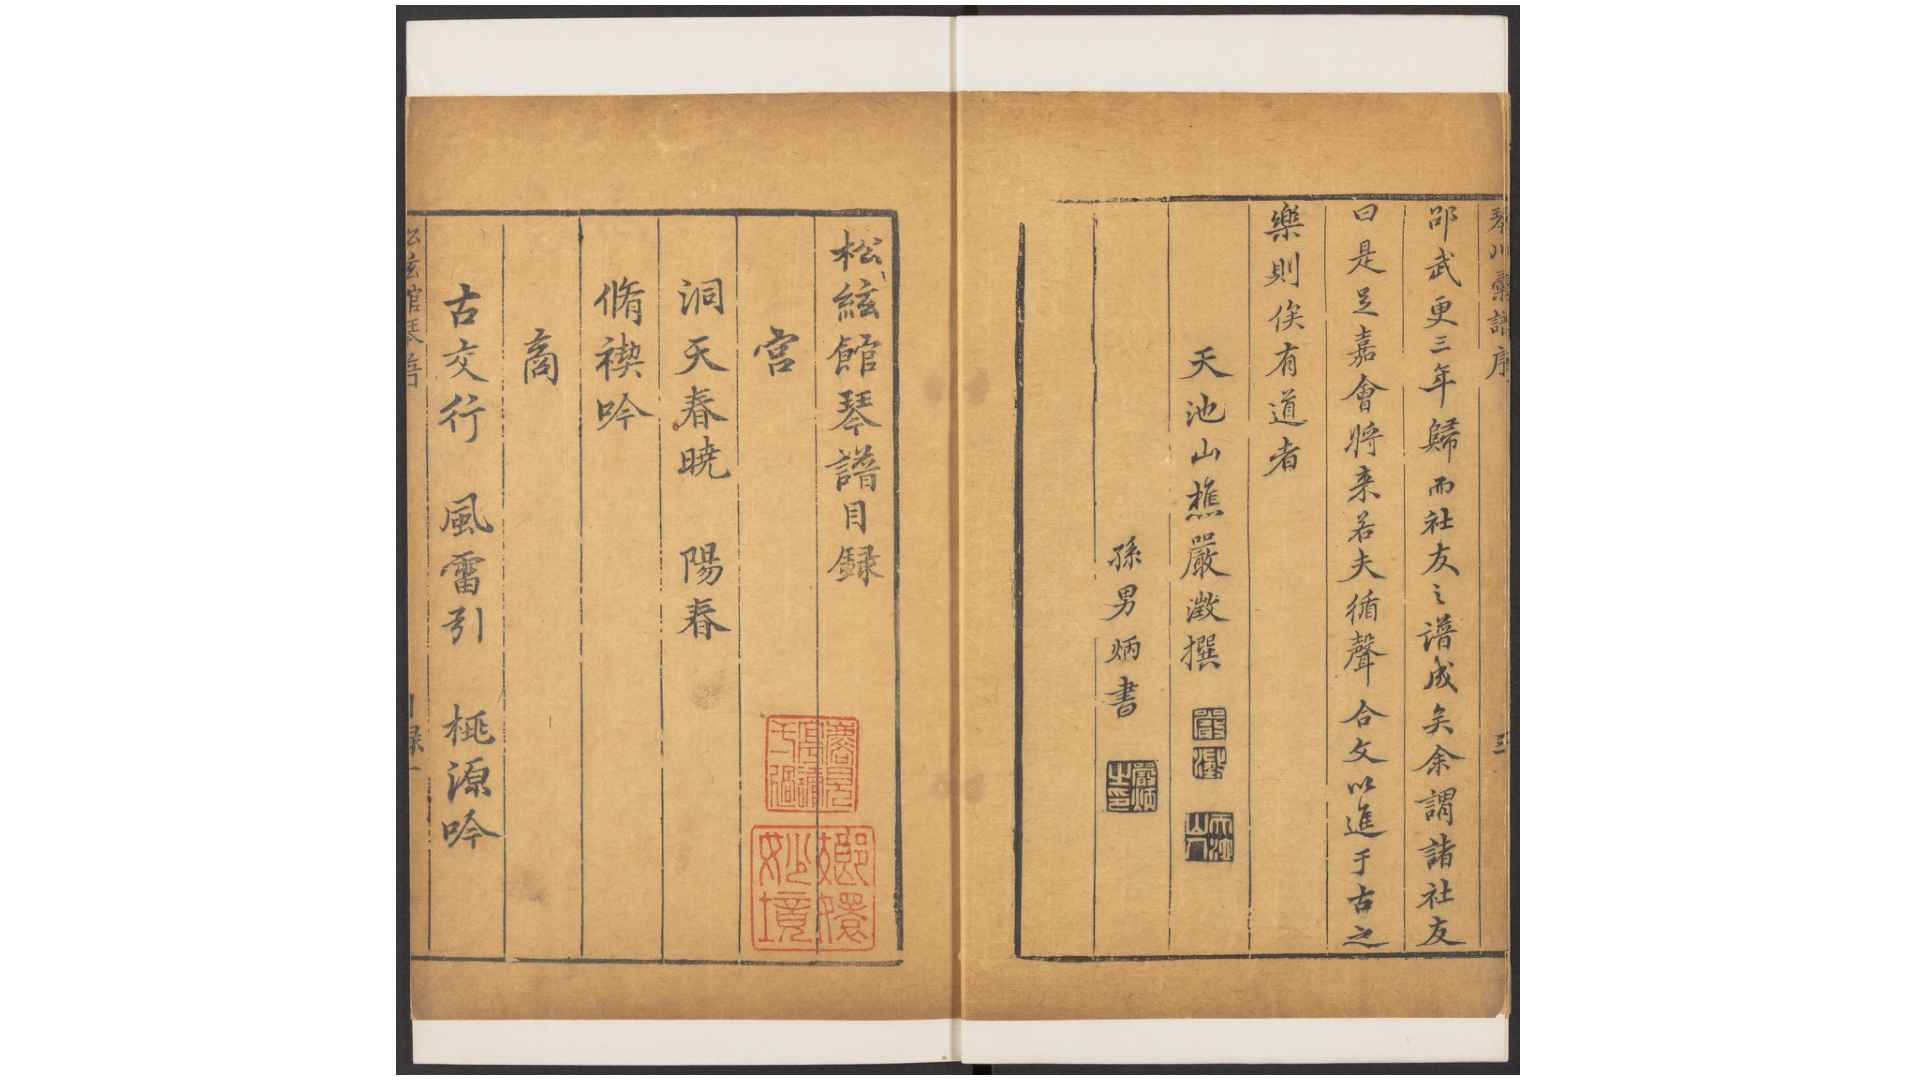 琴川彙譜序 三
邵武更三年歸而社友之譜成矣余謂諸社友
曰是足嘉會將来若夫循聲合文以進于古之
樂則俟有道者
天池山樵嚴澂撰 嚴澂
孫男炳書 嚴炳之印
松絃館琴譜目錄
宮
洞天春曉 陽春
脩禊吟
商
古交行 風雷引 桃源吟
松絃館琴譜 目錄 一
嫏嬛妙境